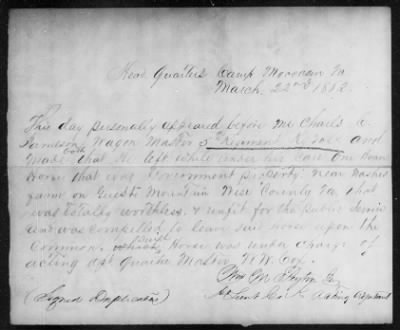 Head Quarters Camp Va
March 22nd 1862
This day personally appeared before me Charles
Wagon Master 5 Regiment and
Made oath that He left while under his care One Roan
Horse that was Government property near
farm on Guests Mountain Wise County Va that
was totally worthless & unfit for the public Service
and was compelled to leave said horse upon the
Common. which said Horse was under charge of
acting ast Quarter Master W. W. Cox.
Wm
(Signed Duplicates) Acting Adjutant